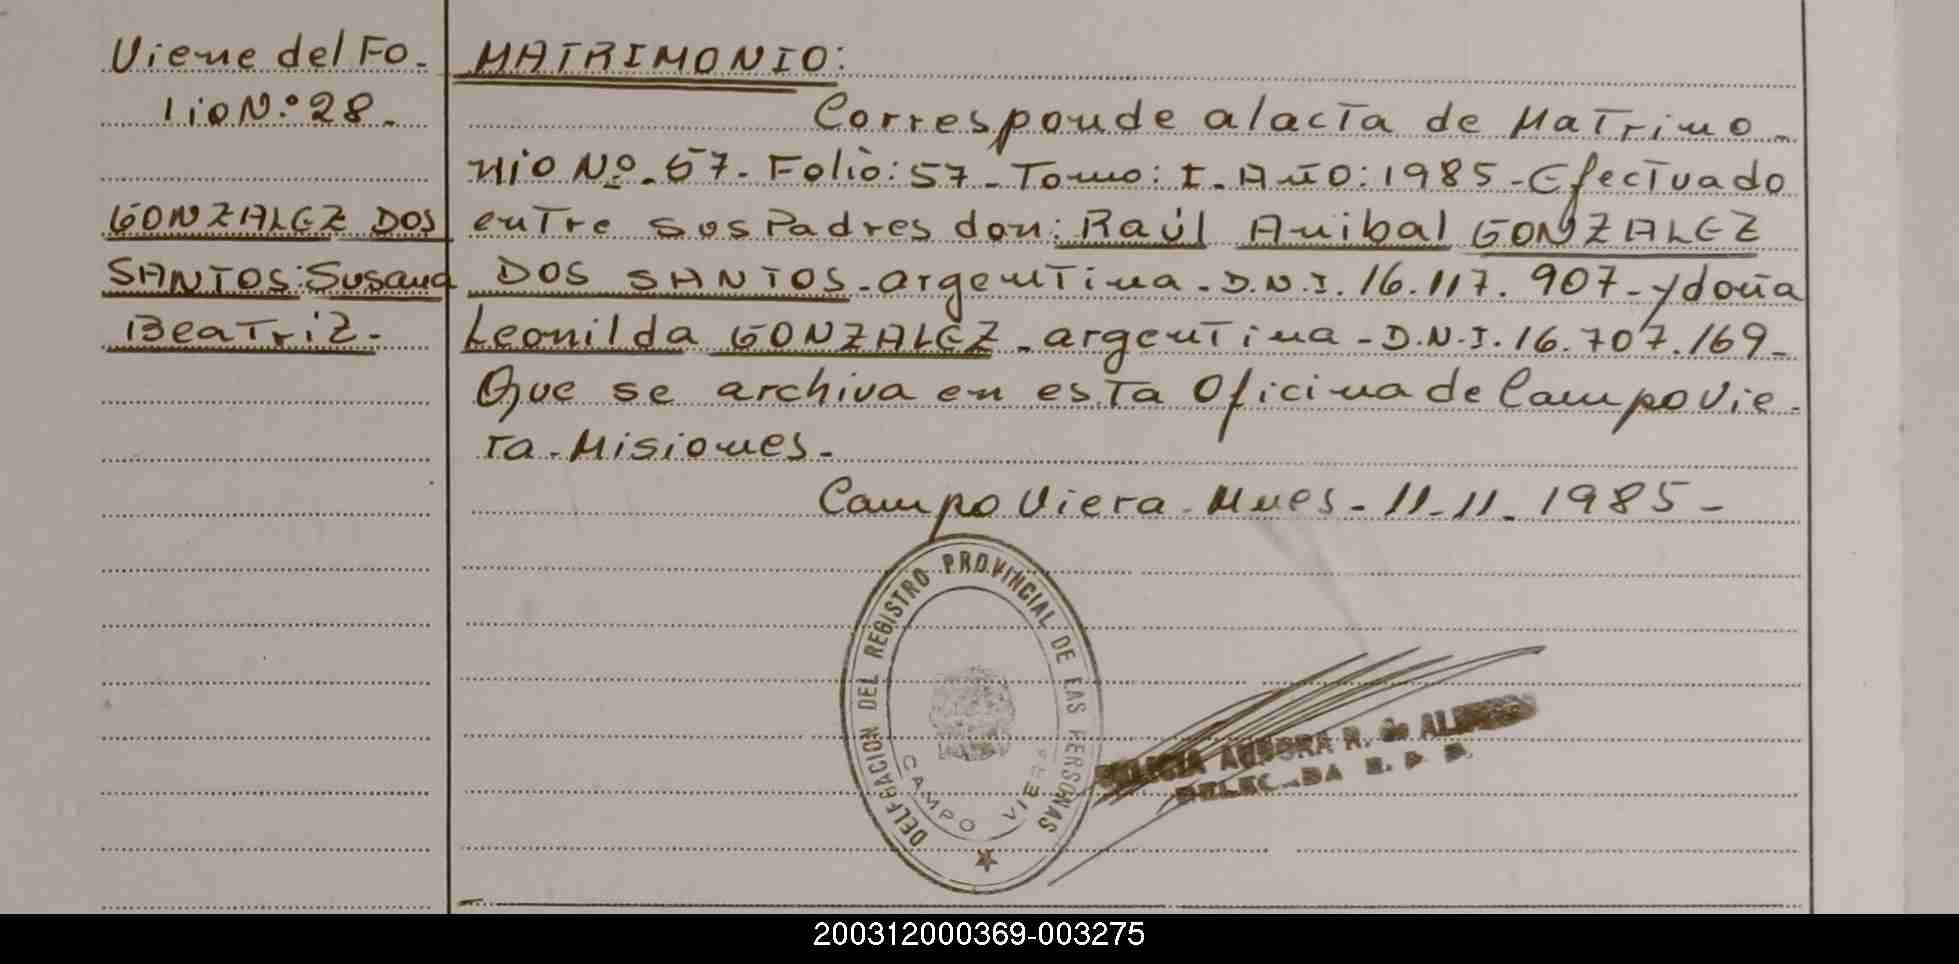 Viene del Fo-
lio N.º 28.
GONZALEZ DOS
SANTOS: Susana
Beatriz-
MATRIMONIO:
Corresponde al acta de Matrimo-
nio Nº. 57. Folio: 57 - Tomo: I. Año: 1985 - Efectuado
entre sus Padres don: Raúl Anibal GONZALEZ
DOS SANTOS - argentina - D.N.I. 16.117.907 - y doña
Leonilda GONZALEZ - argentina - D.N.I. 16.707.169 -
Que se archiva en esta Oficina de Campo Vie-
ra - Misiones -
Campo Viera - Mnes - 11-11-1985 -
DELEGACION DEL REGISTRO PROVINCIAL DE LAS PERSONAS
CAMPO VIERA
AURORA R. de
200312000369-003275